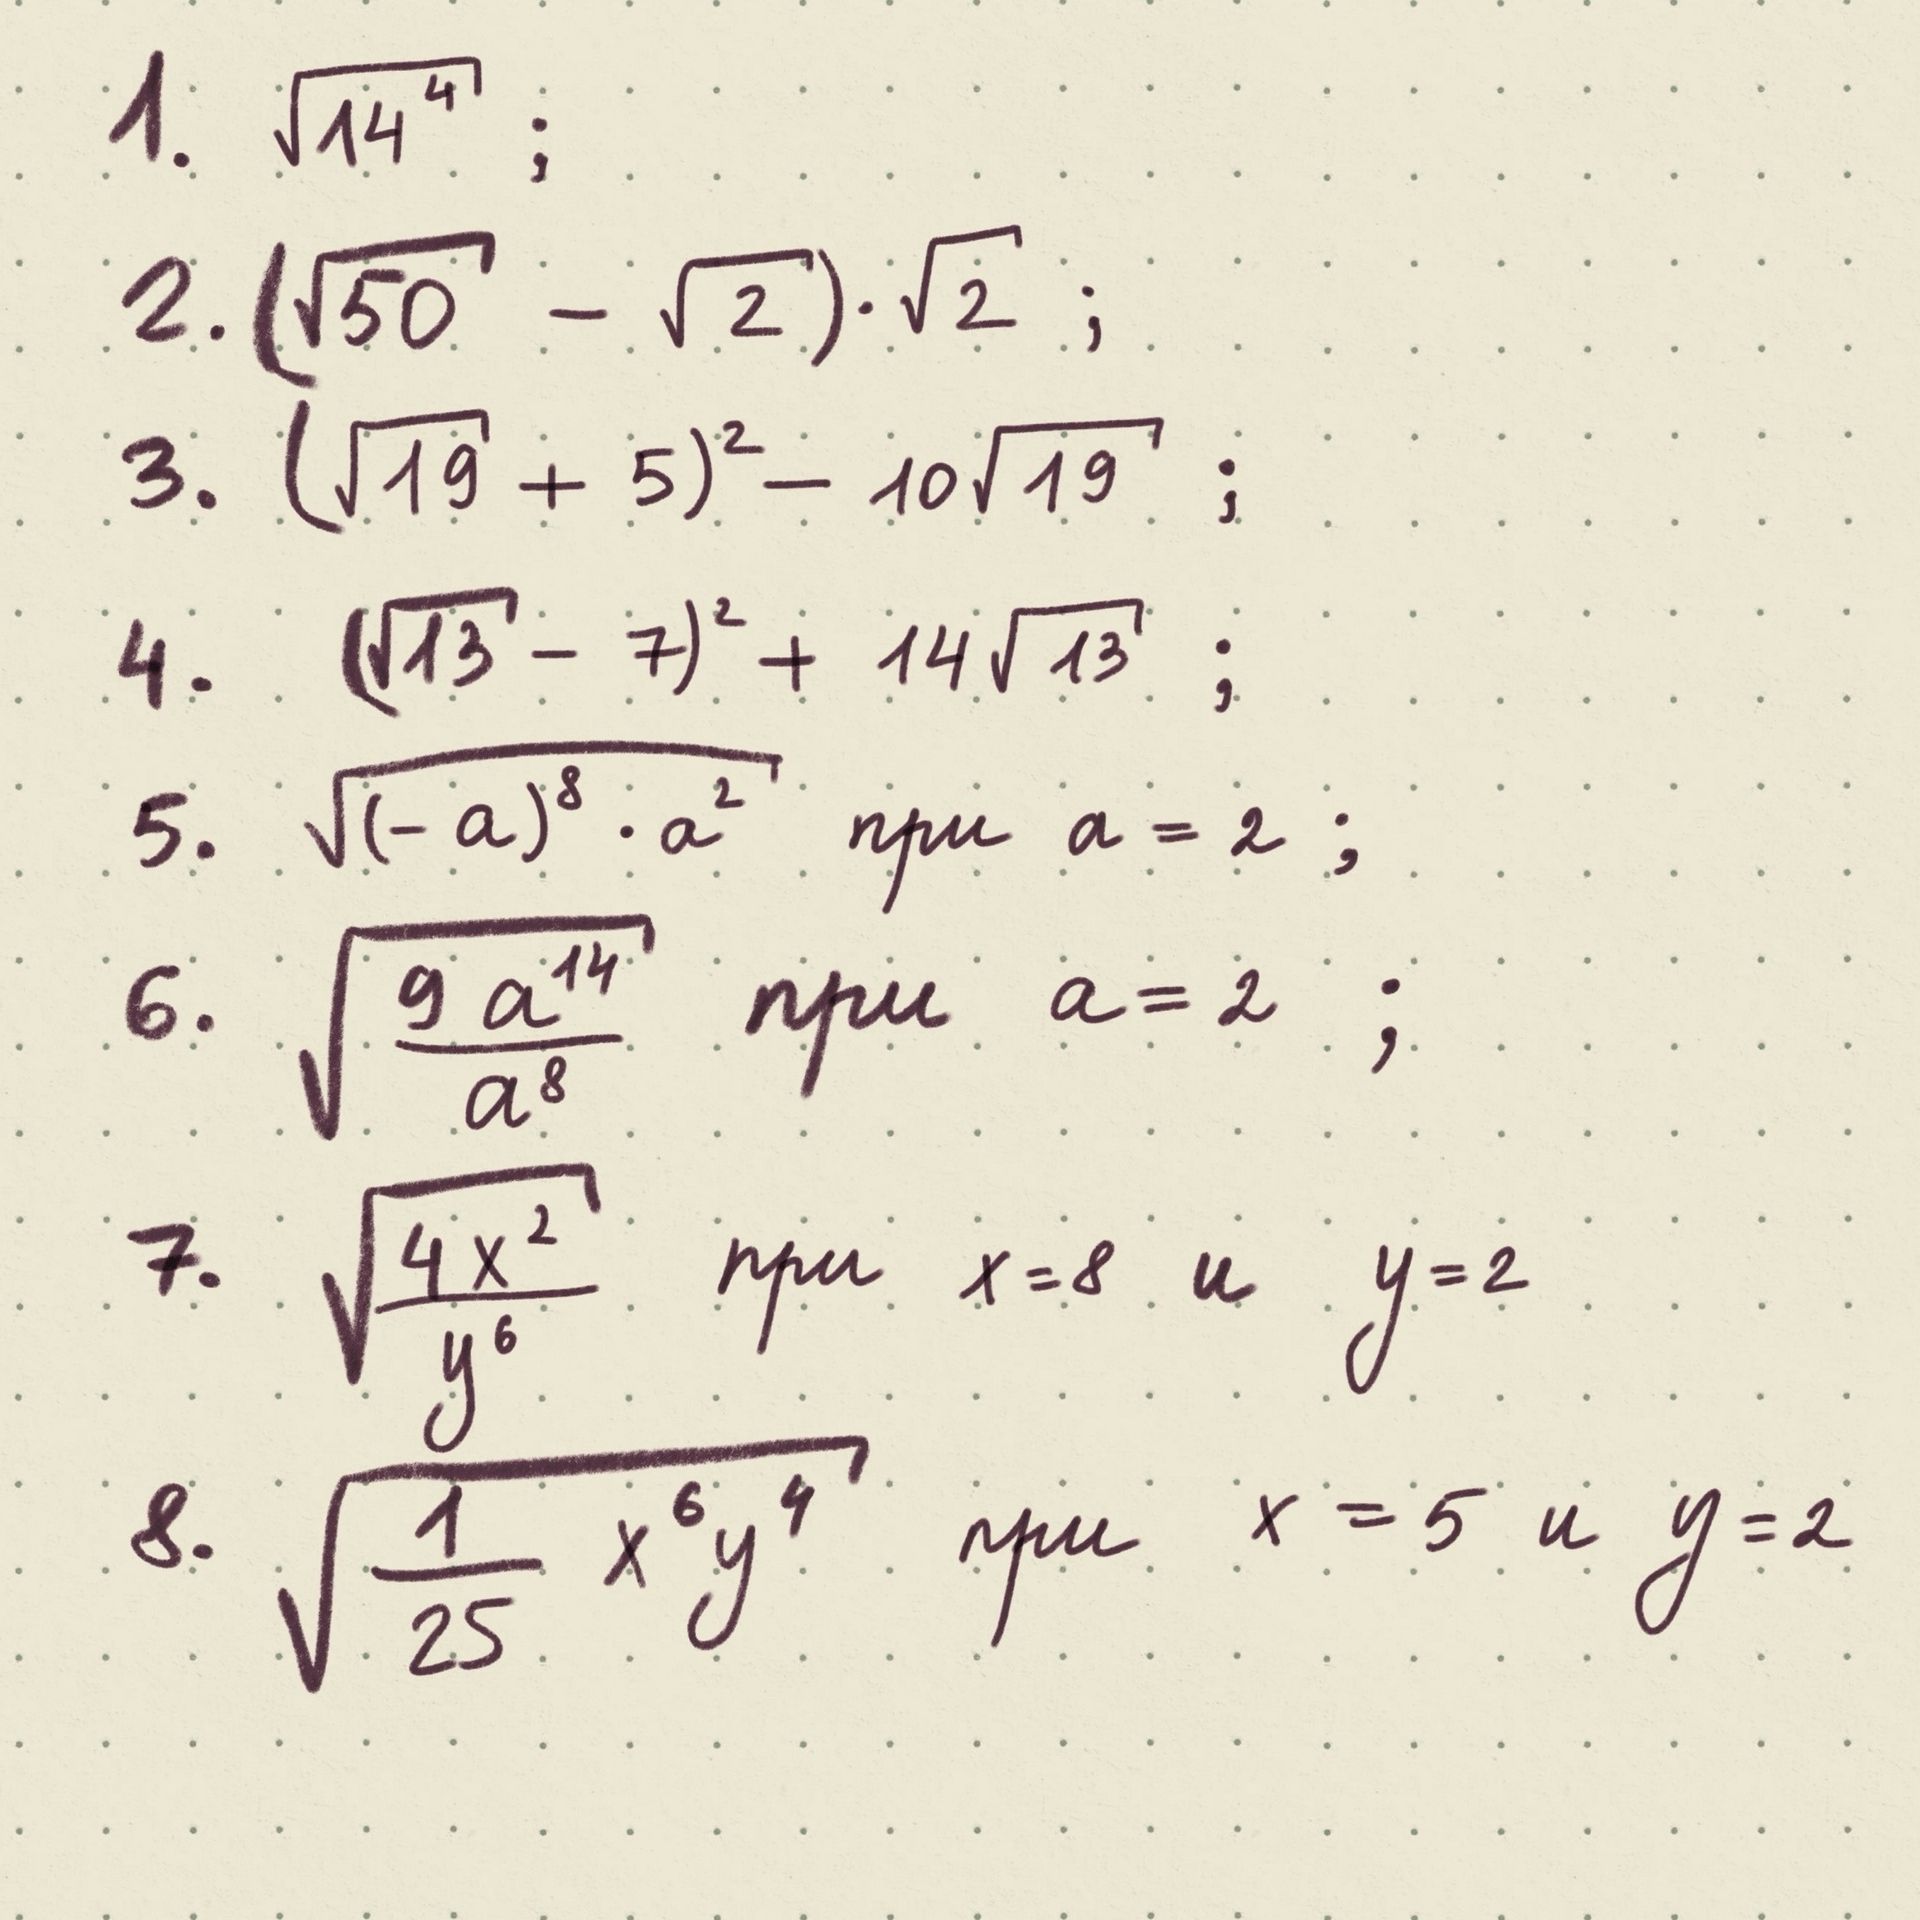 1. √14⁴ ;
2. (√50 − √2) · √2 ;
3. (√19 + 5)² − 10√19 ;
4. (√13 − 7)² + 14√13 ;
5. √((−a)⁸ · a²) при a = 2 ;
6. √(9a¹⁴/a⁸) при a = 2 ;
7. √(4x²/y⁶) при x = 8 и y = 2
8. √(1/25 x⁶y⁴) при x = 5 и y = 2